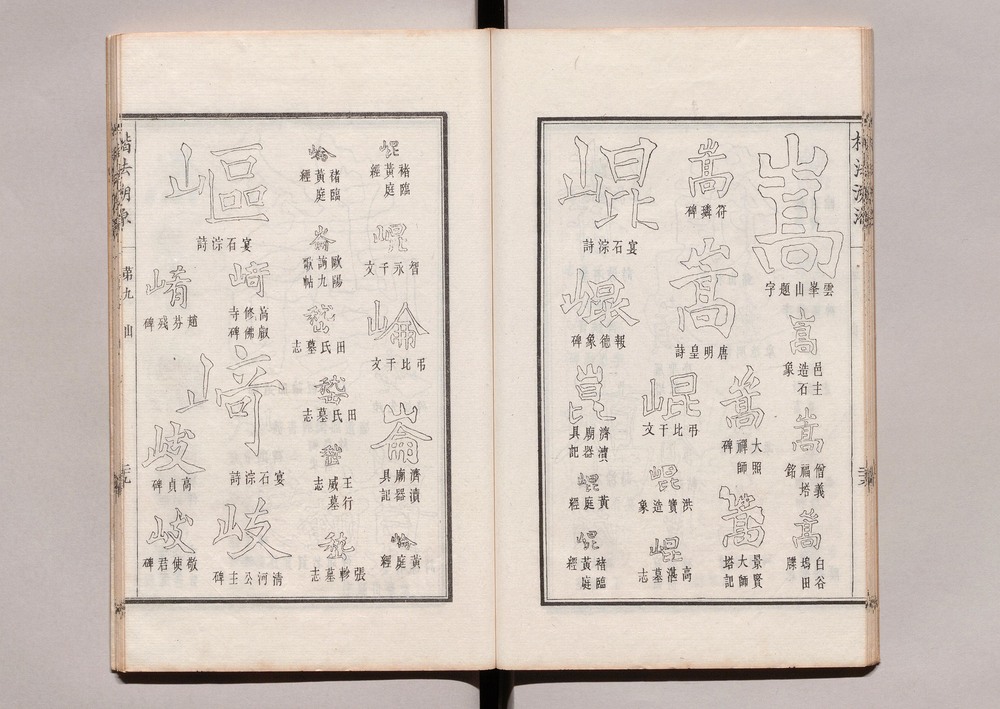 楷法溯源
嵩
雲峯山題字
嵩
邑主造石象
嵩
僧義福塔銘
嵩
白谷塢田牒
嵩
符璘碑
嵩
唐明皇詩
嵩
大照禪師碑
嵩
景賢大師塔記
崐
宴石淙詩
崐
報德象碑
崑
濟瀆廟器具記
崐
黃庭經
崐
褚臨黃庭經
崐
弔比干文
崐
洪寶造象
崐
高湛墓志
崐
褚臨黃庭經
崐
智永千文
崘
弔比干文
崙
濟瀆廟器具記
崘
黃庭經
崘
褚臨黃庭經
崙
歐陽詢九歌帖
嵆
田氏墓志
嵇
田氏墓志
嵇
王行威墓志
嵇
張軫墓志
嶇
宴石淙詩
崎
高叡修佛寺碑
崎
宴石淙詩
岐
清河公主碑
崤
趙芬殘碑
岐
高貞碑
岐
敬使君碑
楷法溯源
第九
山